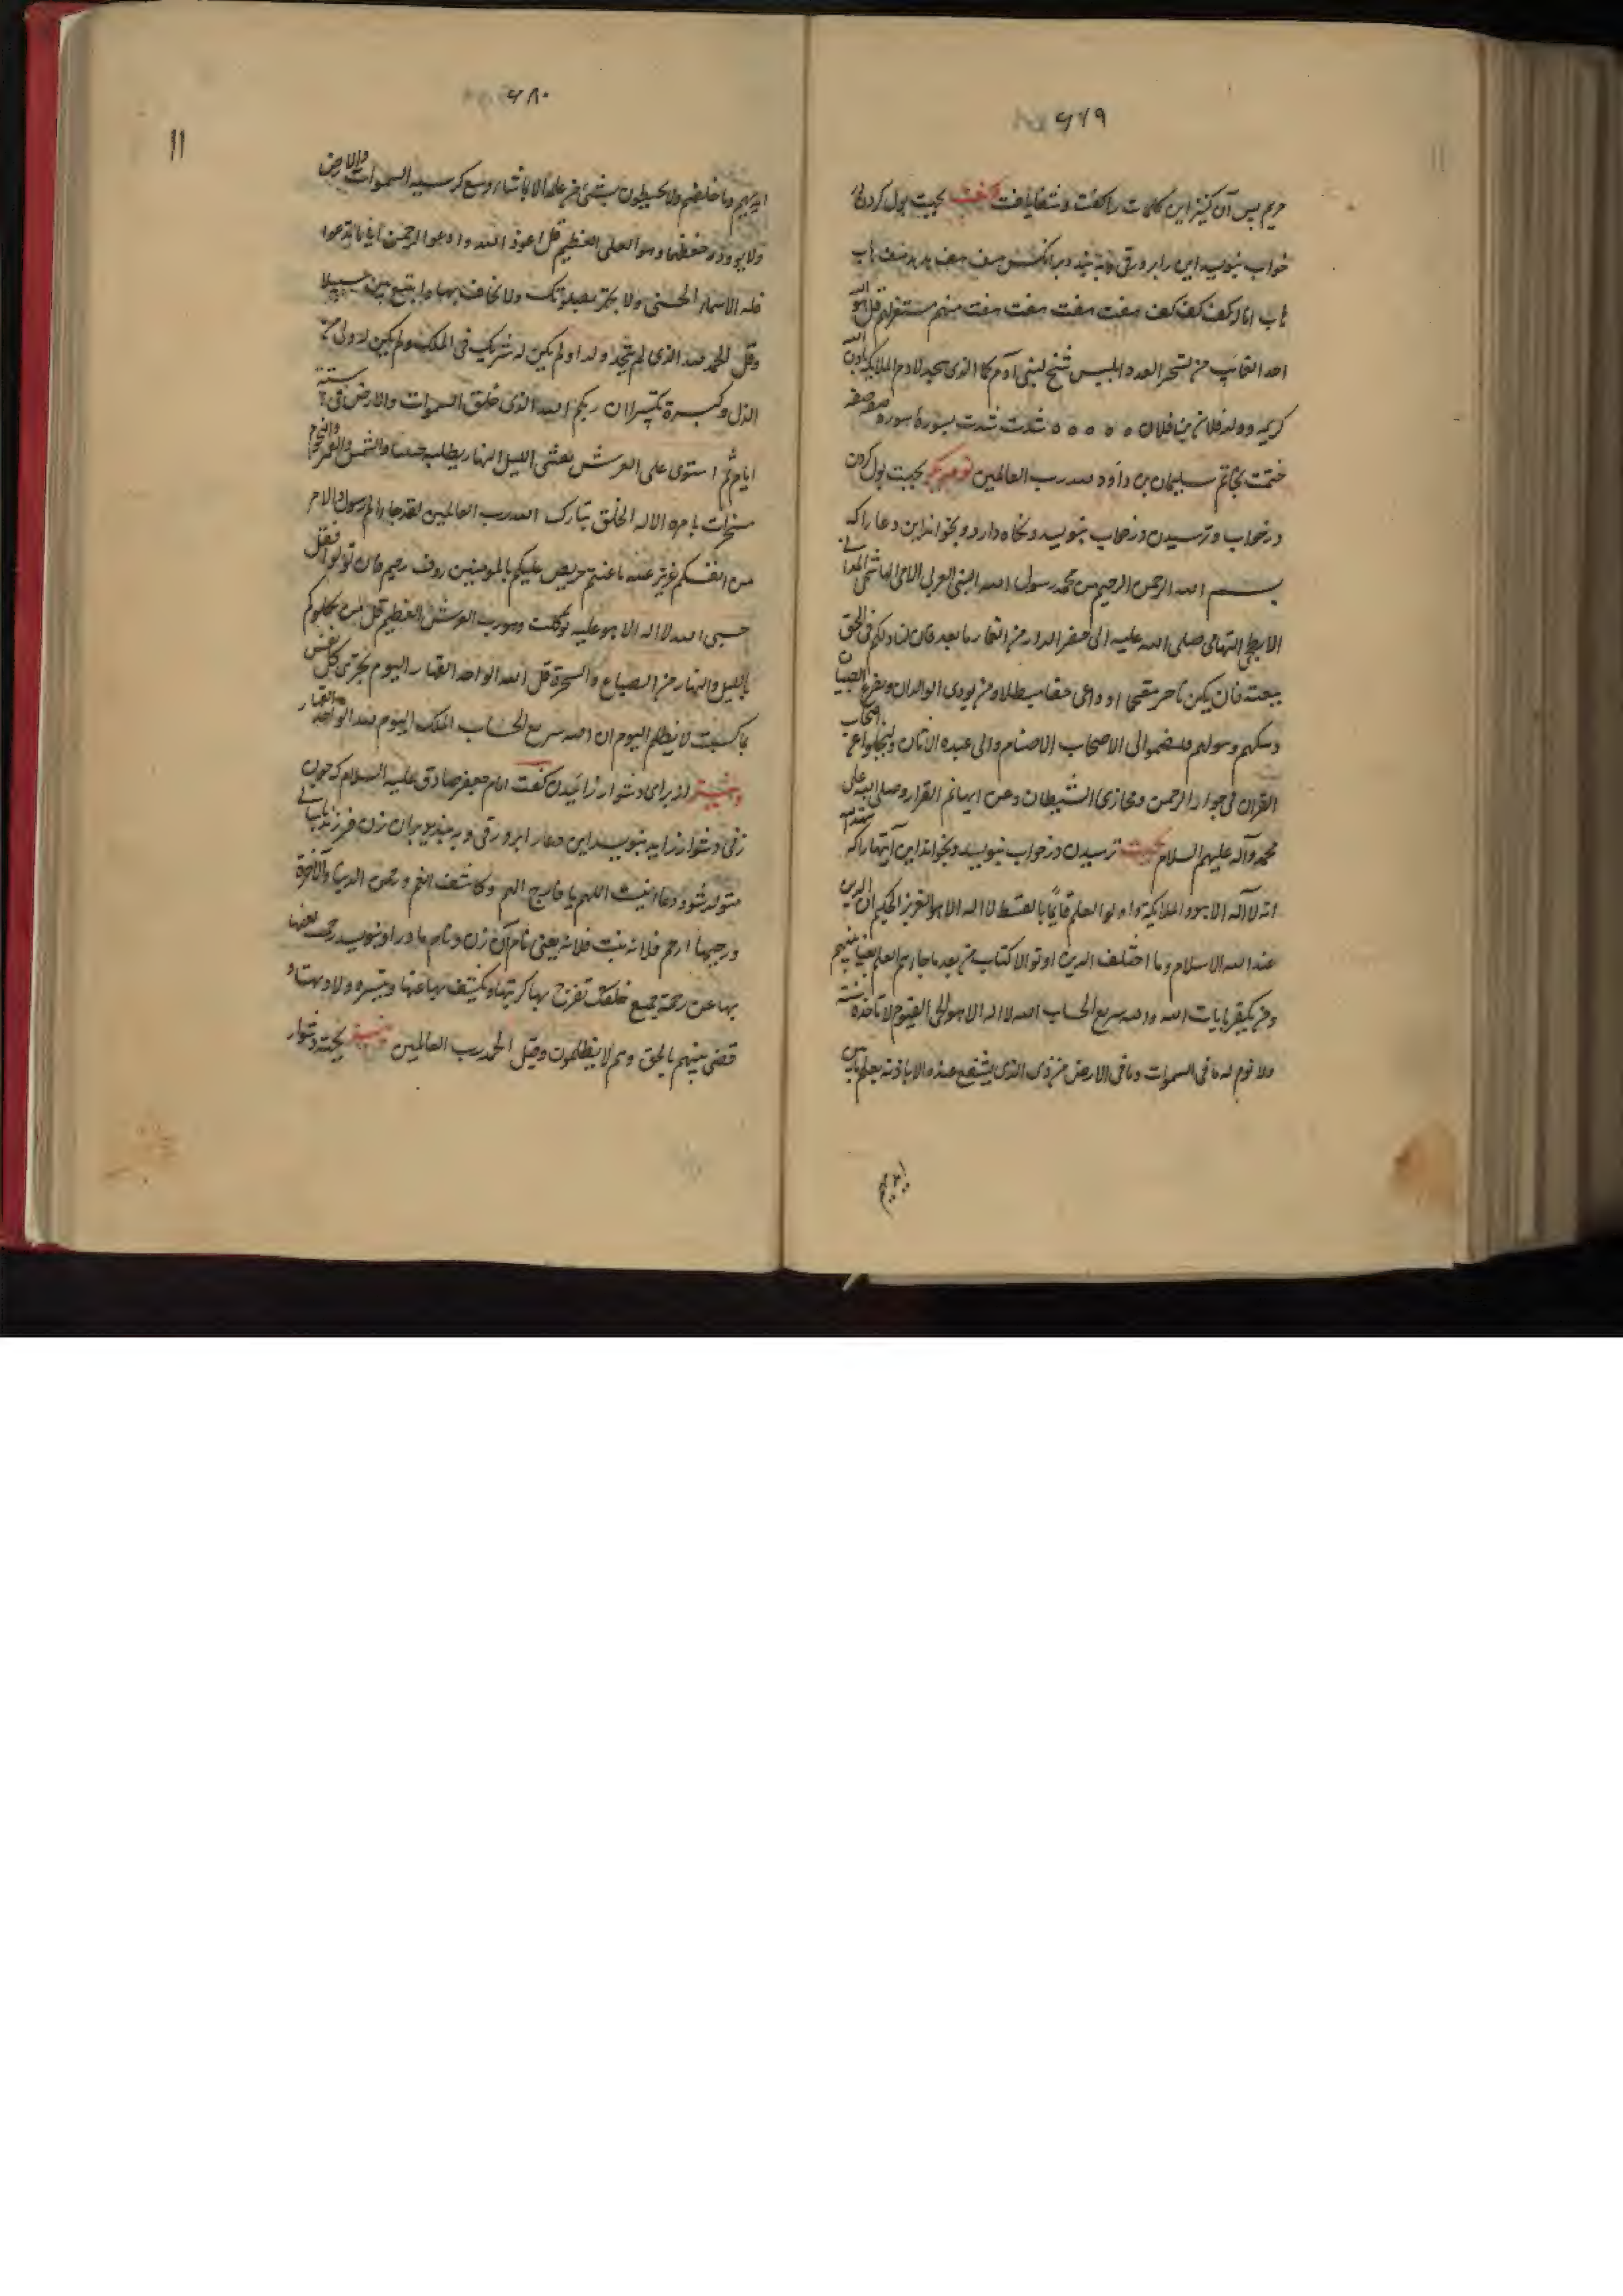 ۶۷۹
مریم پس آن کنیز این کلمات را گفت و شفا یافت بجهت بول کردن
خواب بنویسد این را بر ورقی و به بندد بر آنکس هف هف هد هد هف هاب
هاب اماله کف کف کف هفت هفت هفت هفت منهم مستفر لهم قل هو الله
احد العاب من لشحر العده ابلیس شیخ لبنی آدم کما الذی سجد لادم الملایکه باذن
کریمه و ولد فلان بن فلان ه ه ه ه ه شدت شدت بسورة سوره
ختمت بخاتم سلیمان بن داود لله رب العالمین نوع دیگر بجهت بول کردن
در خواب و ترسیدن در خواب بنویسد و نگاه دارد و بخواند این دعا را که
بسم الله الرحمن الرحیم من محمد رسول الله النبی العربی الامی الهاشمی المدنی
الابطحی التهامی صلی الله علیه الی من الدار من العمار ما بعد فان لنا و لکم فی الحق
بیعته فان یکن فاجر مقتحما او داعی حقا مبطلا و من یوذی الوالدان و یفزع الصبیان
و یبکیهم و یبولهم فلیضموا الی الاصحاب الاصنام والی عبده الاثان و لیخلوا عن اصحاب
القران فی جوار الرحمن و مخازی الشیطان و عن ایمانهم القرار و صلی الله علی
محمد وآله علیهم السلام بجهت ترسیدن در خواب بنویسد و بخواند این آیتها را که شهد الله
انه لا آله الا هو و الملایکة و اولو العلم قایما بالقسط لا اله الا هو العزیز الحکیم ان الدین
عند الله الاسلام و ما اختلف الذین اوتو الکتاب من بعد ما جاءهم العلم بغیا بینهم
و من یکفر بایات الله و الله سریع الحساب الله لا اله الا هو الحی القیوم لا تاخذه سنة
ولا نوم له ما فی السموات و ما فی الارض من ذی الذی یشفع عنده الا باذنه یعلم ما بین
ایدیهم
۶۸۰
11
ایدیهم و ما خلفهم ولا یحیطون بشیء من علمه الا بما شاء وسع کرسیه السموات والارض
ولا یوده حفظهما و هو العلی العظیم قل ادعوا الله و ادعوا الرحمن ایا ما تدعوا
فله الاسماء الحسنی ولا تجهر بصلوتک ولا تخافت بها و ابتغ بین سبیلا
و قل الحمد لله الذی لم یتخذ ولدا و لم یکن له شریک فی الملک و لم یکن له ولی من
الذل و کبره تکبیرا ان ربکم الله الذی خلق السموات والارض فی ستة
ایام ثم استوی علی العرش یغشی اللیل النهار یطلبه حثیثا والشمس والقمر والنجوم
مسخرات بامره الا له الخلق تبارک الله رب العالمین لقد جاءکم رسول والامر
من انفسکم عزیز علیه ما عنتم حریص علیکم بالمومنین روف رحیم فان تولوا فقل
حسبی الله لا اله الا هو علیه توکلت و هو رب العرش العظیم قل من یکلوکم
باللیل والنهار من السباع والسحرة قل الله الواحد القهار الیوم تجزی کل نفس
بما کسبت لا ظلم الیوم ان الله سریع الحساب الملک الیوم لله الواحد القهار
از برای دشوار زائیدن گفت امام جعفر صادق علیه السلام که چون
زنی دشوار زاید بنویسد این دعا را بر ورقی و به بندد بر ران زن فرزند بآسانی
متولد شود دعا اینست اللهم یا فارج الهم و کاشف الغم و رحمن الدنیا والآخرة
و رحیمها ارحم فلانه بنت فلانه یعنی نام آن زن و نام مادر او بنویسد رحمة تغنها
بها عن رحمة جمیع خلقک تفرج بها کربتها و تکشف بها غمها و تیسر ولادتها و
قضی بینهم بالحق و هم لا یظلمون و قیل الحمد لله رب العالمین بجهته دشوار